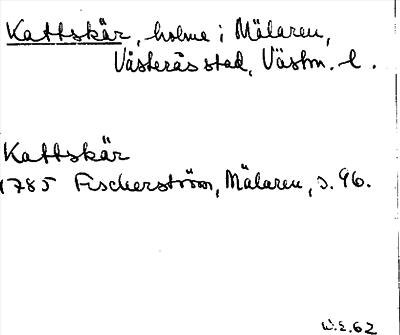 Kattskär, holme i Mälaren,
Västerås stad, Västm. l.
Kattskär
1785 Fischerström, Mälaren, s. 96.
W.E. 62